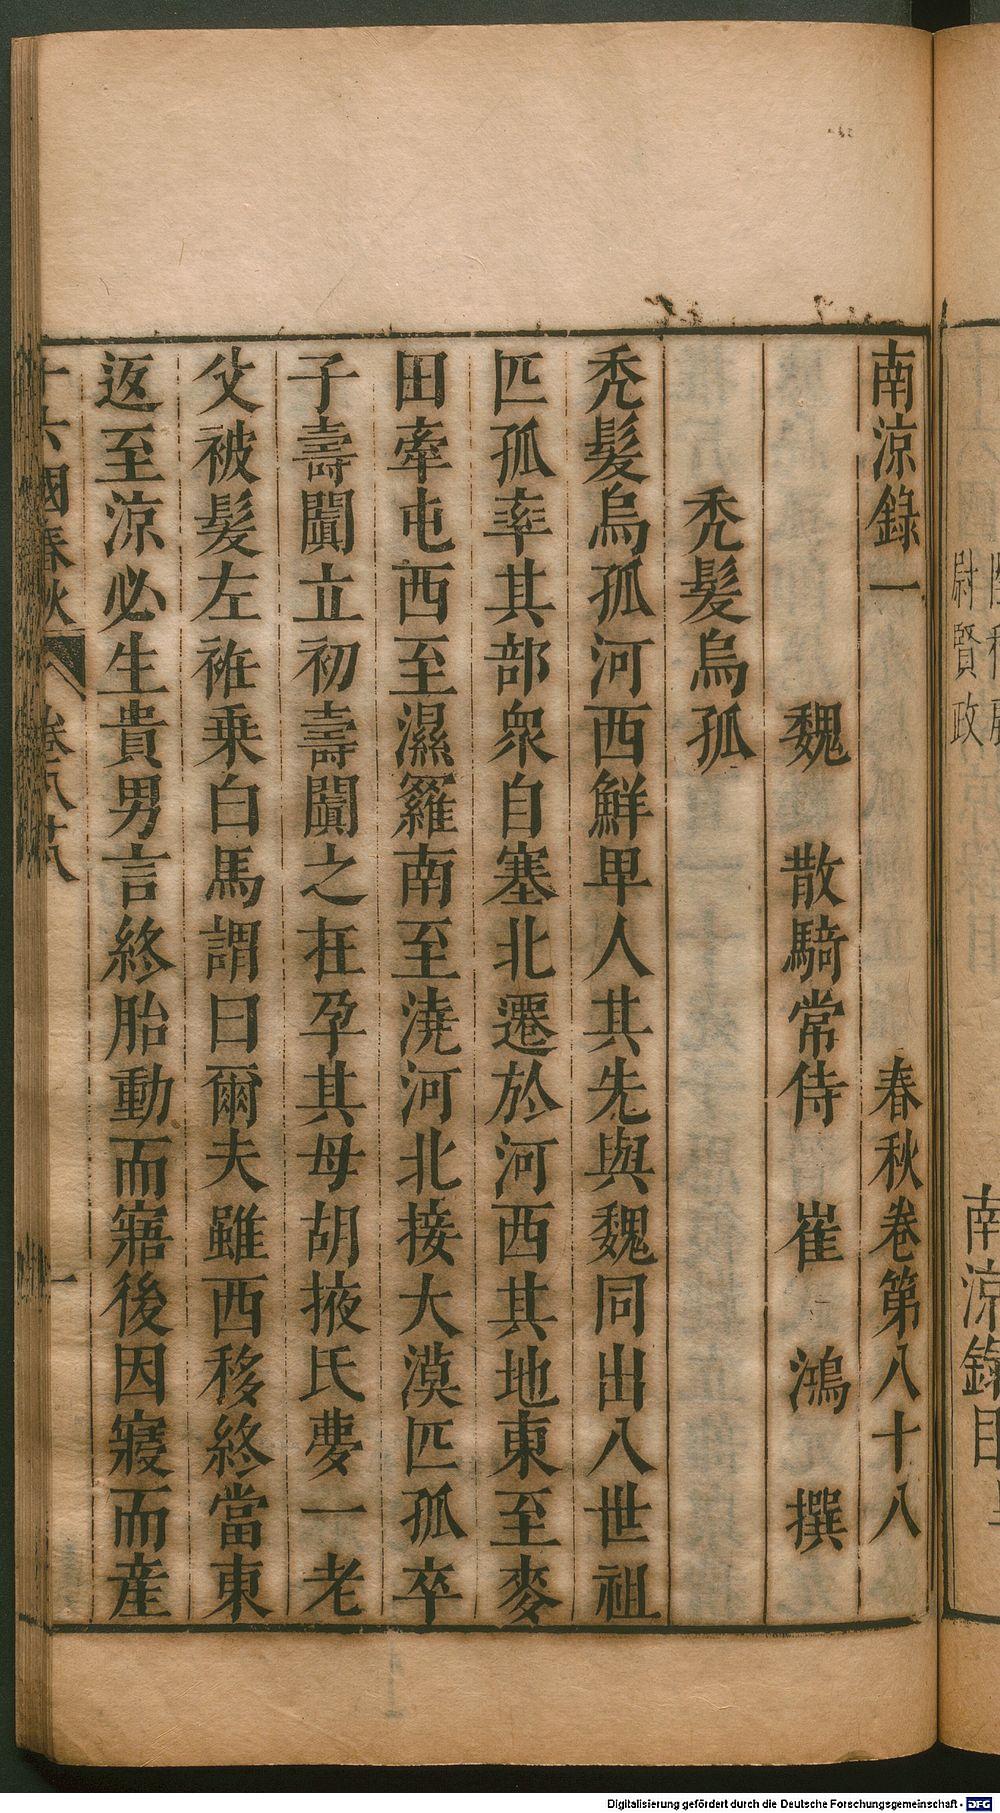 尉賢政
南涼錄
南涼錄一　春秋卷第八十八
魏　散騎常侍　崔　鴻　撰
禿髮烏孤
禿髮烏孤河西鮮卑人其先與魏同出八世祖
匹孤率其部衆自塞北遷於河西其地東至麥
田牽屯西至濕羅南至澆河北接大漠匹孤卒
子壽闐立初壽闐之在孕其母胡掖氏夢一老
父被髮左袵乗白馬謂曰爾夫雖西移終當東
返至涼必生貴男言終胎動而寤後因寢而産
十六國春秋　卷八十八　一
Digitalisierung gefördert durch die Deutsche Forschungsgemeinschaft - DFG